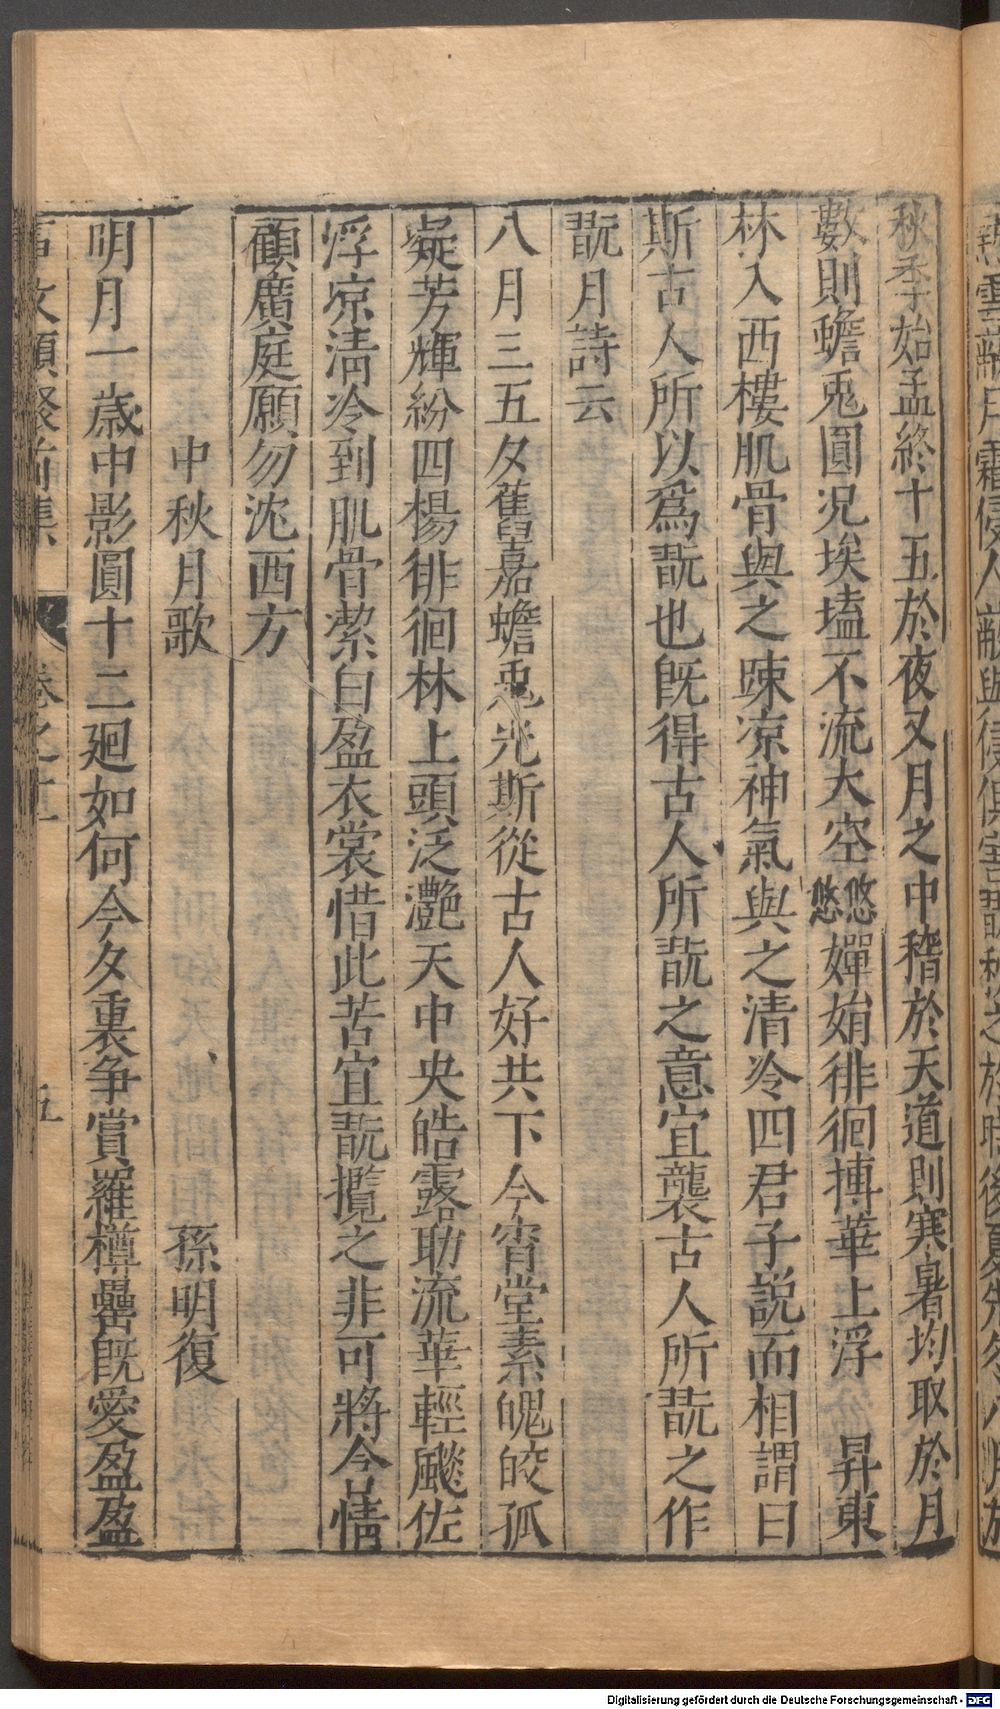 秋季始孟終十五於夜又月之中稽於天道則寒暑均取於月
數則蟾兎圓况埃𡏖不流大空悠悠嬋娟徘徊摶華上浮　昇東
林入西樓肌骨與之踈凉神氣與之清冷四君子說而相謂曰
斯古人所以爲翫也旣得古人所翫之意宜襲古人所翫之作
翫月詩云
八月三五夕舊嘉蟾兎光斯從古人好共下今宵堂素魄皎孤
凝芳輝紛四楊徘徊林上頭泛灧天中央皓露助流華輕飈佐
浮凉清冷到肌骨潔白盈衣裳惜此苦宜翫攬之非可將含情
顧廣庭願勿沈西方
中秋月歌　孫明復
明月一歲中影圓十二廻如何今夕裏爭賞羅樽罍旣愛盈盈
事文類聚前集　卷之十一　五
Digitalisierung gefördert durch die Deutsche Forschungsgemeinschaft - DFG